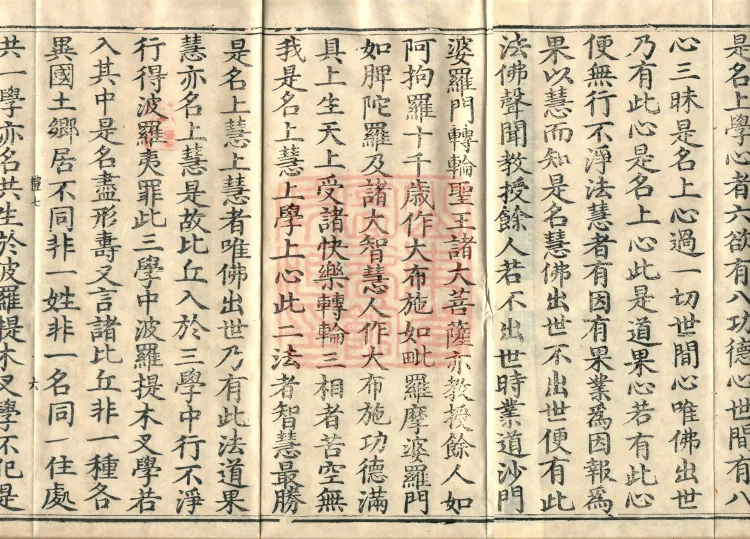 是名上學心者六欲有八功德心世間有八
心三昧是名上心過一切世間心唯佛出世
乃有此心是名上心此是道果心若有此心
便無行不淨法慧者有因有果業為因報為
果以慧而知是名慧佛出世不出世便有此
法佛聲聞教授餘人若不出世時業道沙門
婆羅門轉輪聖王諸大菩薩亦教授餘人如
阿拘羅十千歲作大布施如毗羅摩婆羅門
如脾陀羅及諸大智慧人作大布施功德滿
具上生天上受諸快樂轉輪三相者苦空無
我是名上慧上學上心此二法者智慧最勝
是名上慧上慧者唯佛出世乃有此法道果
慧亦名上慧是故比丘入於三學中行不淨
行得波羅夷罪此三學中波羅提木叉學若
入其中是名盡形壽又言諸比丘非一種各
異國土鄉居不同非一姓非一名同一住處
共一學亦名共生於波羅提木叉學不犯是